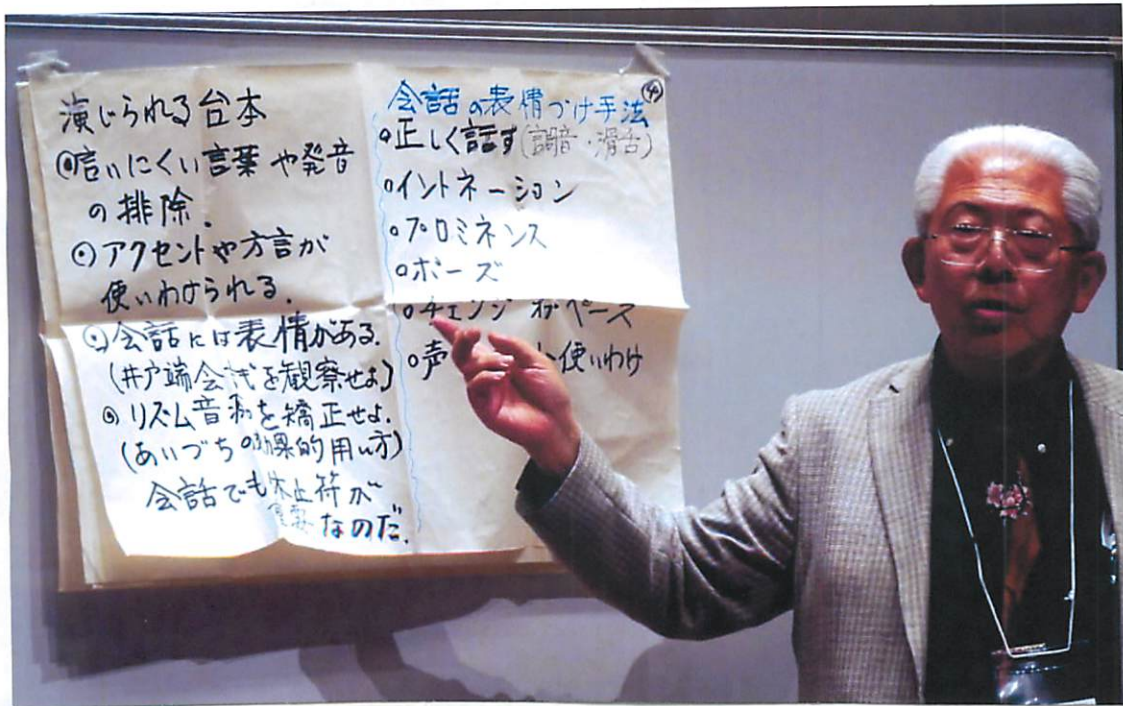 演じられる台本
◉言いにくい言葉や発音
の排除.
◉アクセントや方言が
使いわけられる.
◉会話には表情がある.
(井戸端会議を観察せよ)
◉リズム音痴を矯正せよ.
(あいづちの効果的用い方)
会話でも休止符が
重要なのだ.
会話の表情づけ手法
○正しく話す(調音・滑舌)
○イントネーション
○プロミネンス
○ポーズ
○チェンジ オブ ペース
○声 使いわけ